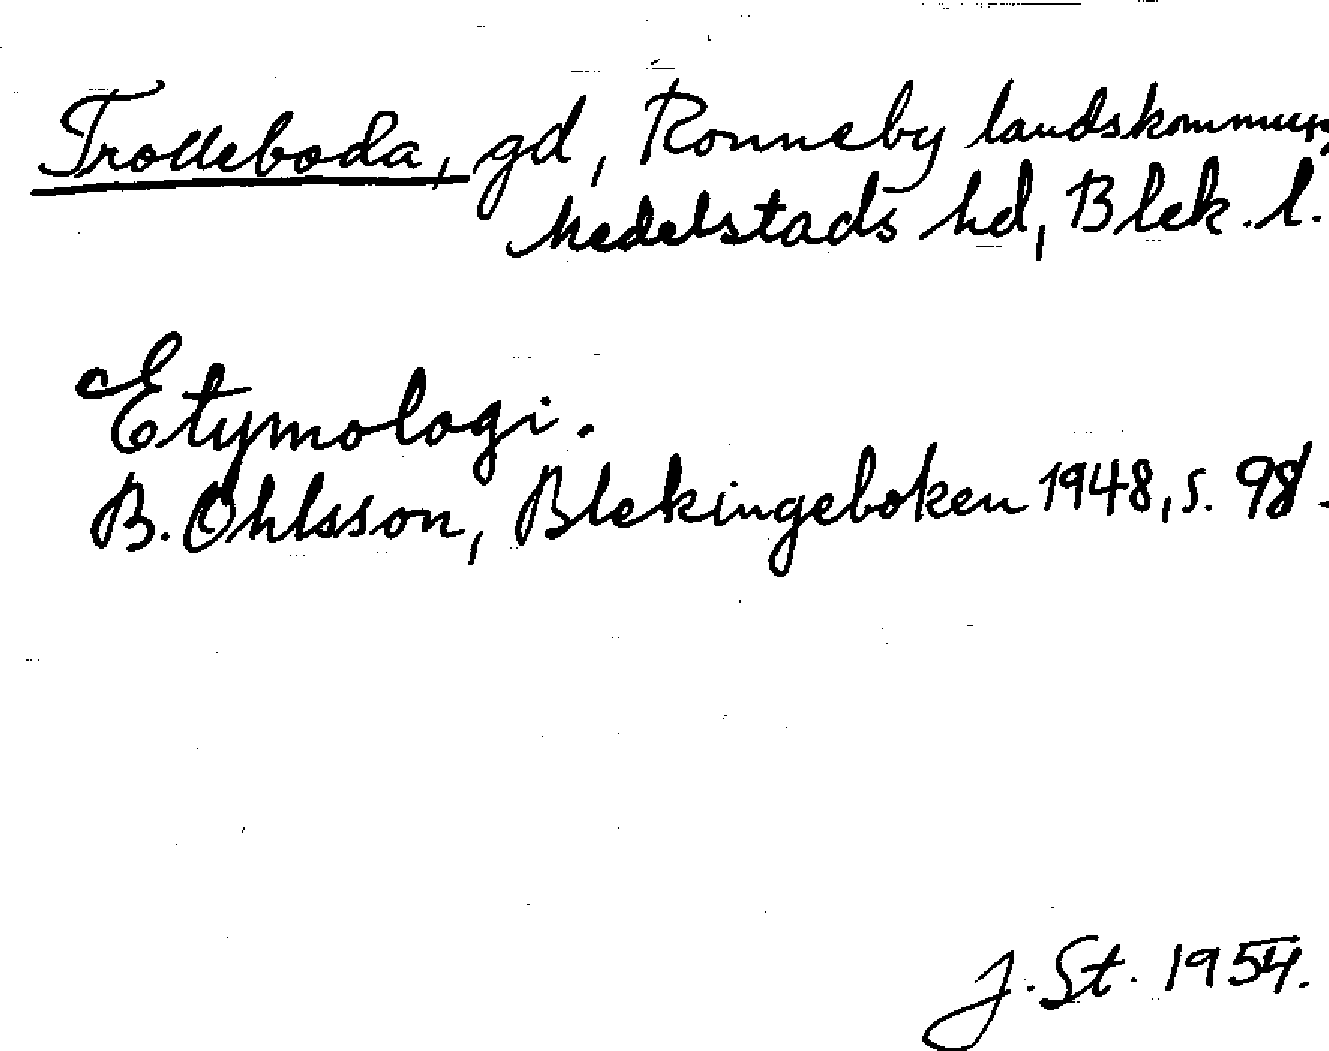 Trolleboda, gd, Ronneby landskommun,
Medelstads hd, Blek. l.
Etymologi.
B. Ohlsson, Blekingeboken 1948, s. 98.
J. St. 1954.